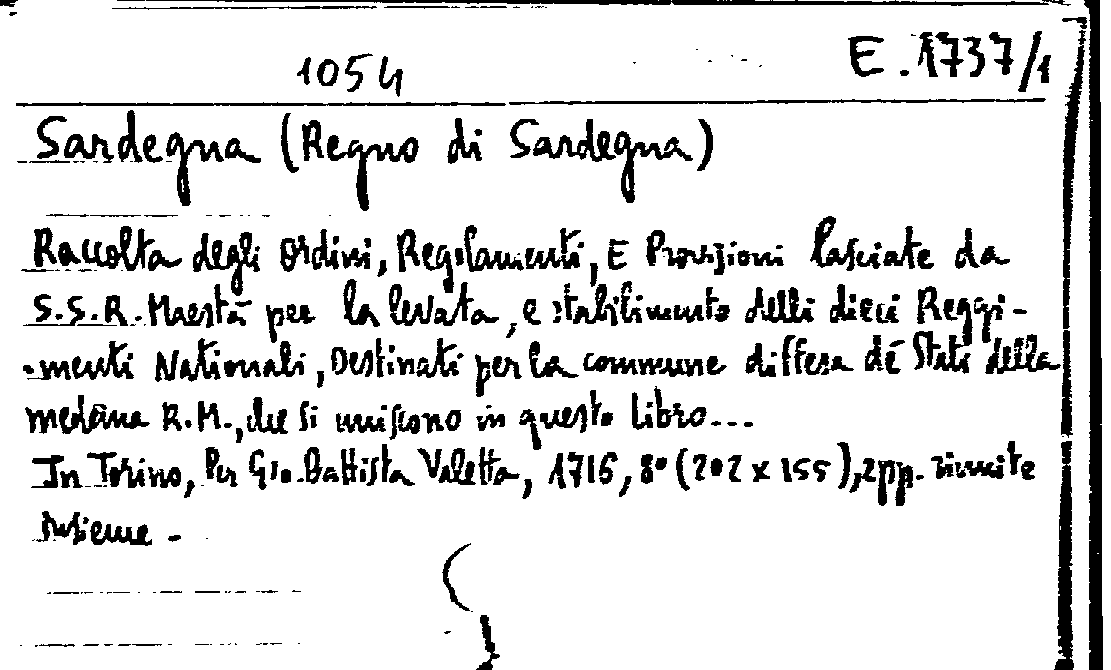 1054 E.1737/1
Sardegna (Regno di Sardegna)
Raccolta degli Ordini, Regolamenti, E Provisioni lasciate da
S.S.R. Maestà per la levata, e stabilimento delli dieci Reggi-
-menti Nationali, Destinati per la commune diffesa dé Stati della
medema R.M., che si uniscono in questo libro...
In Torino, Per Gio. Battista Valetta, 1716, 8° (202 x 155), 2 pp. riunite
insieme -